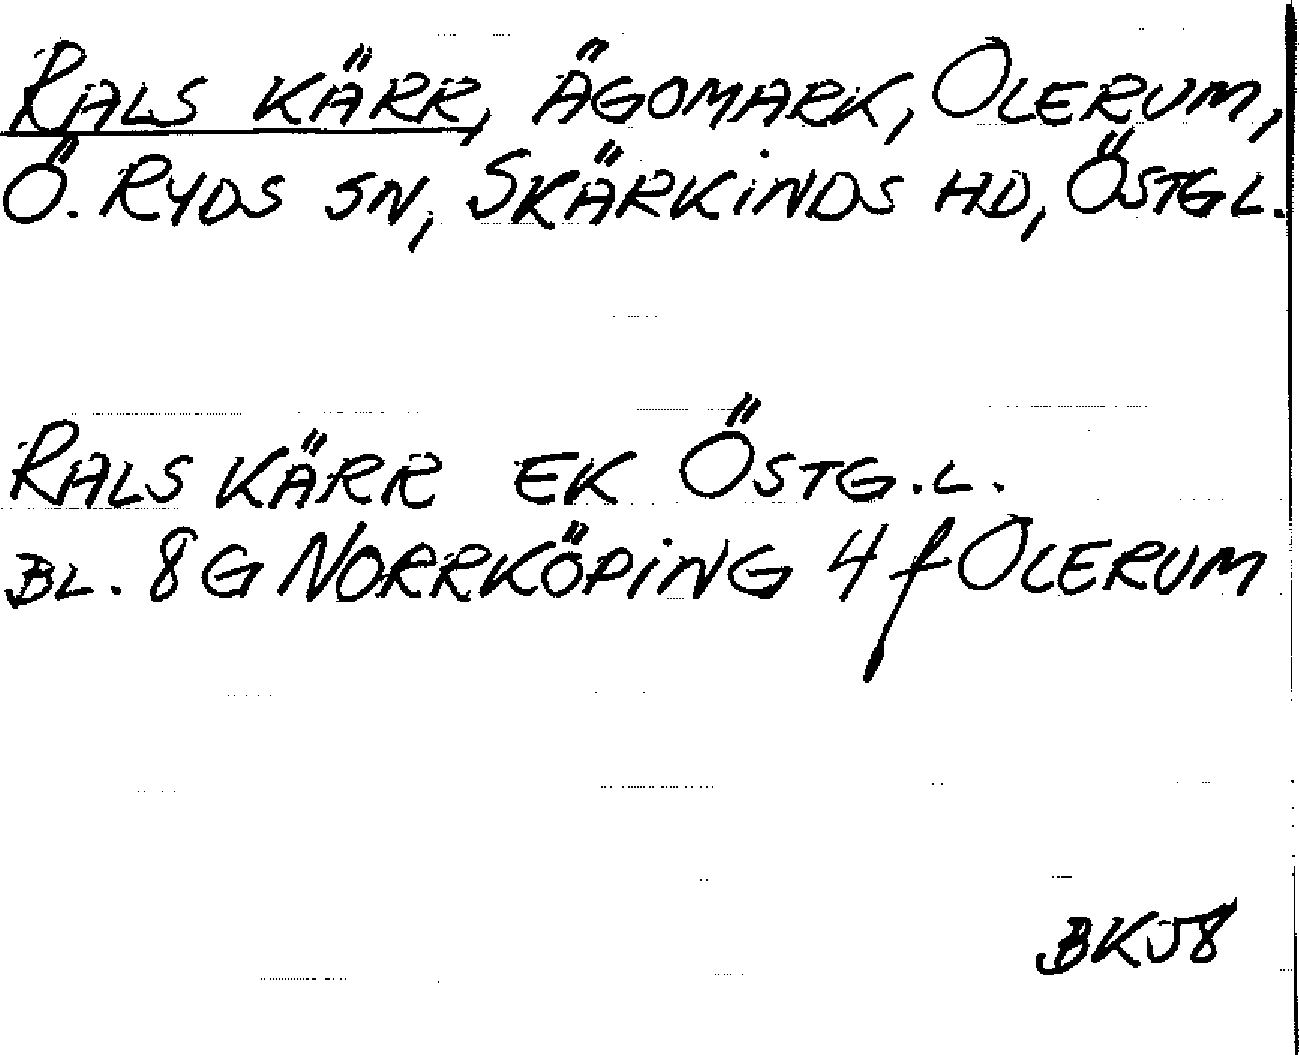 RALS KÄRR, ÄGOMARK, OLERUM,
Ö. RYDS SN, SKÄRKINDS HD, ÖSTGL.
RALS KÄRR EK ÖSTG.L.
BL. 8G NORRKÖPING 4f OLERUM
BKJ8